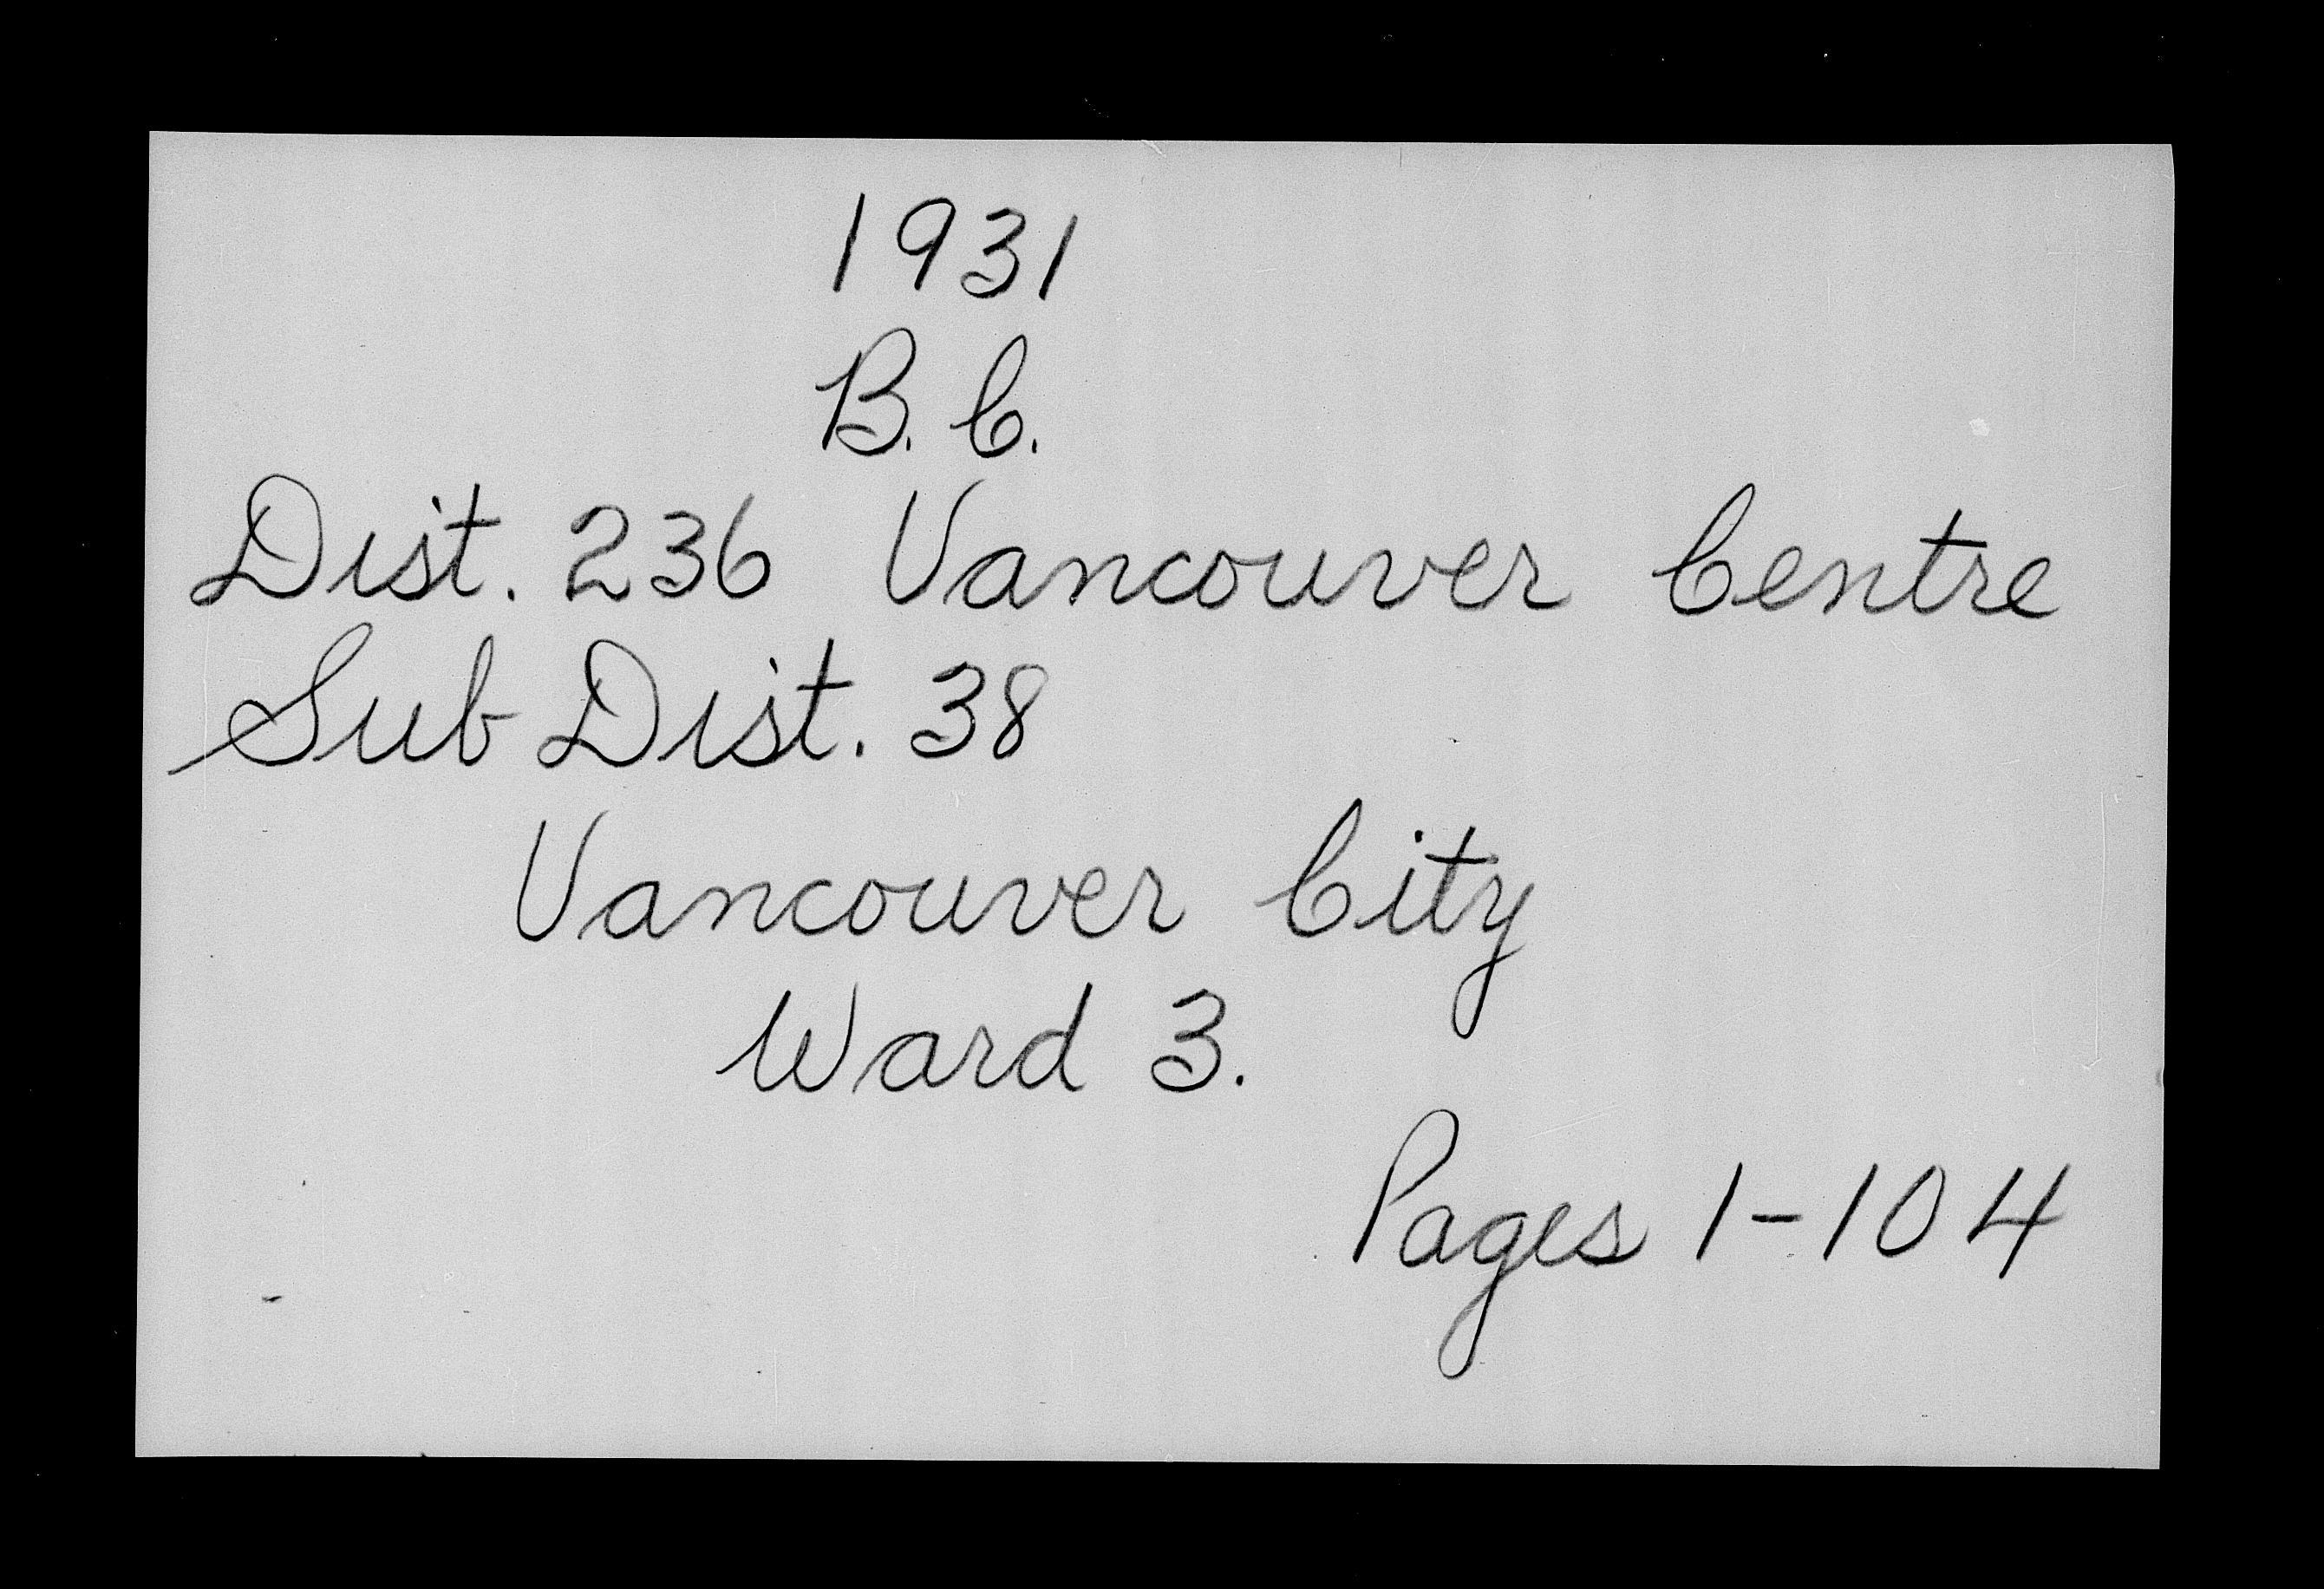 1931
B.C.
Dist. 236 Vancouver Centre
Sub Dist. 38
Vancouver City
Ward 3.
Pages 1-104